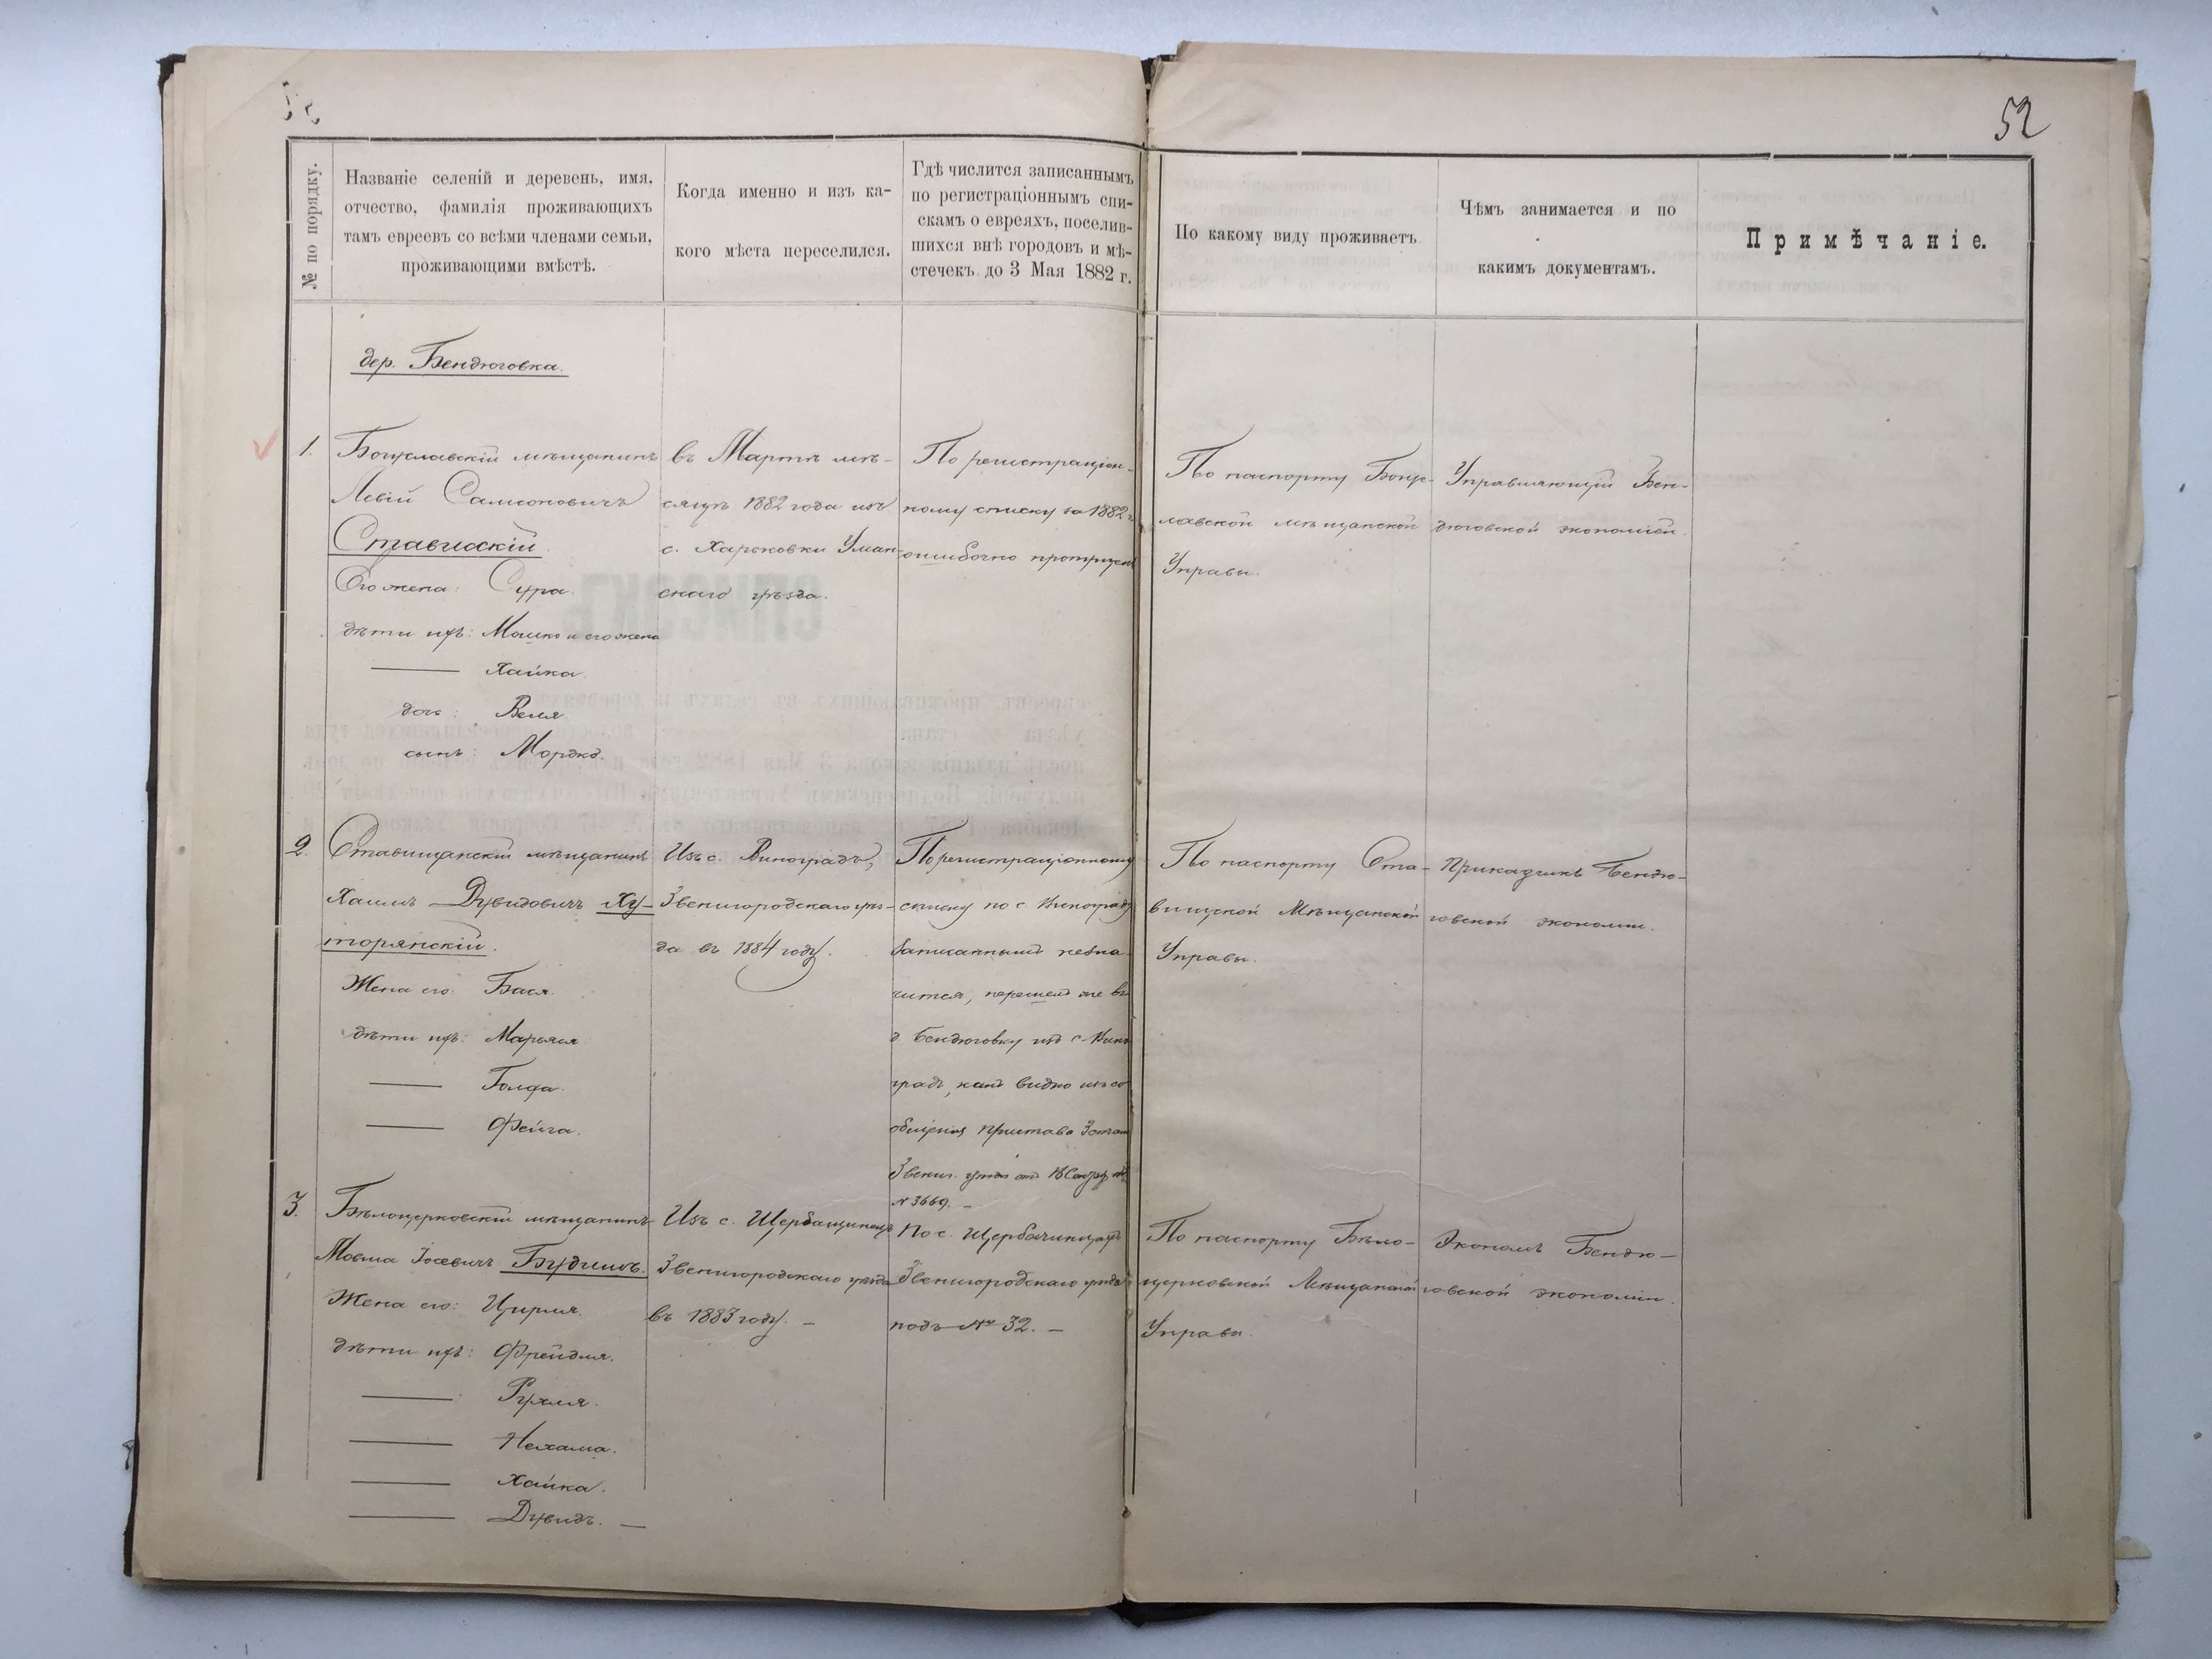 52
№ по порядку.
Названіе селеній и деревень, имя,
отчество, фамилія проживающихъ
тамъ евреевъ со всѣми членами семьи,
проживающими вмѣстѣ.
Когда именно и изъ ка-
кого мѣста переселился.
Гдѣ числится записаннымъ
по регистраціоннымъ спи-
скамъ о евреяхъ, поселив-
шихся внѣ городовъ и мѣ-
стечекъ до 3 Мая 1882 г.
По какому виду проживаетъ
Чѣмъ занимается и по
какимъ документамъ.
Примѣчаніе.
дер. Бендюговка.
1.
Богуславскій мѣщанинъ
Левій Самсоновичъ
Ставискій.
Его жена: Сура.
дѣти ихъ: Мошко и его жена
Хайка.
дочь: Веля
сынъ: Мордко.
въ Мартѣ мѣ-
сяцѣ 1882 года изъ
с. Харьковки Уман-
скаго уѣзда.
По регистраціон-
ному списку за 1882 г
ошибочно пропущенъ
По паспорту Богу-
лавской мѣщанской
Управы.
Управляющій Бен-
дюговской экономіей.
2.
Ставищанскій мѣщанинъ
Хаимъ Дувидовичъ Ху-
торянскій.
Жена его: Бася.
дѣти ихъ: Марьяся
Голда.
Фейга.
Изъ с. Виноградъ,
Звенигородскаго уѣз-
да въ 1884 году.
По регистраціонному
списку по с Виноградъ
записаннымъ незна-
чится, перешелъ же въ
д Бендюговку изъ с Вино
градъ, какъ видно изъ со
общенія пристава 3 стана
Звениг. уѣзда отъ
№ 3669. –
По паспорту Ста-
вищской Мѣщанской
Управы.
Приказчикъ Бендю-
говской экономіи.
3.
Бѣлоцерковскій мѣщанинъ
Мовша Іосевичъ Будиловъ.
Жена его: Цирля.
дѣти ихъ: Фрейдля.
Рухля.
Нехама.
Хайка.
Дувидъ. –
Изъ с. Щербашинецъ
Звенигородскаго уѣзда
въ 1883 году. –
По с. Щербачинцахъ
Звенигородскаго уѣзда
подъ № 32. –
По паспорту Бѣло-
церковской Мѣщанской
Управы.
Экономъ Бендю-
говской экономіи.